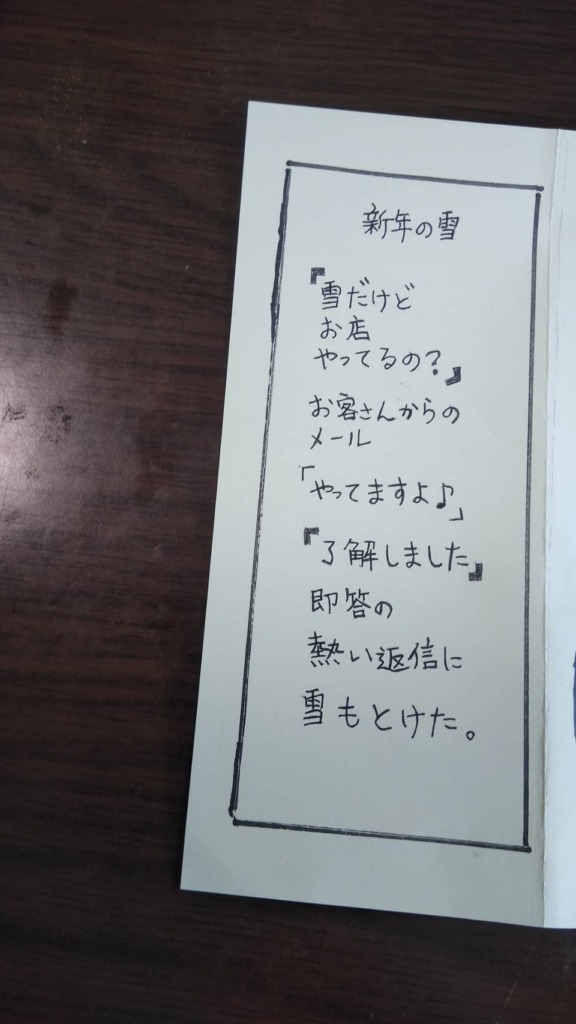 新年の雪
『雪だけど
お店
やってるの?』
お客さんからの
メール
「やってますよ♪」
『了解しました』
即答の
熱い返信に
雪もとけた。